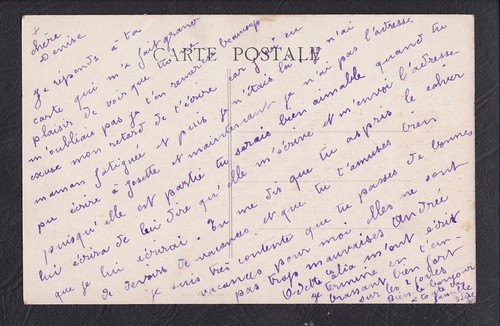 CARTE POSTALE
chère
Denise
je réponds à ta
carte qui m'a fait grand
plaisir de voir que tu ne
m'oubliais pas je t'en remercie beaucoup
excuse mon retard de t'écrire car j'ai eu
maman fatiguée et puis je n'étais là je n'ai
pu écrire à Josette et maintenant je n'ai pas l'adresse
puisqu'elle est partie tu serais bien aimable quand tu
lui écrira de lui dire qu'elle m'écrive et m'envoi l'adresse
que je lui écrirai. Tu me dis que tu as pris le cahier
de devoirs de vacances et que tu t'amuses bien
je suis très contente que tu passes de bonnes
vacances pour moi elles ne sont
pas trop mauvaises Andrée
Odette m'ont écrit
je termine en t'em-
brassant bien fort
sur les 2 joues
bien le bonjour
à toute ta
famille